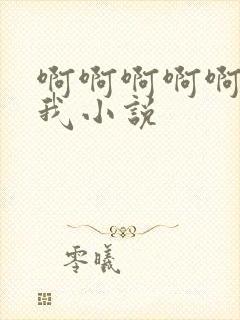 啊啊啊啊啊
我小说
零曦